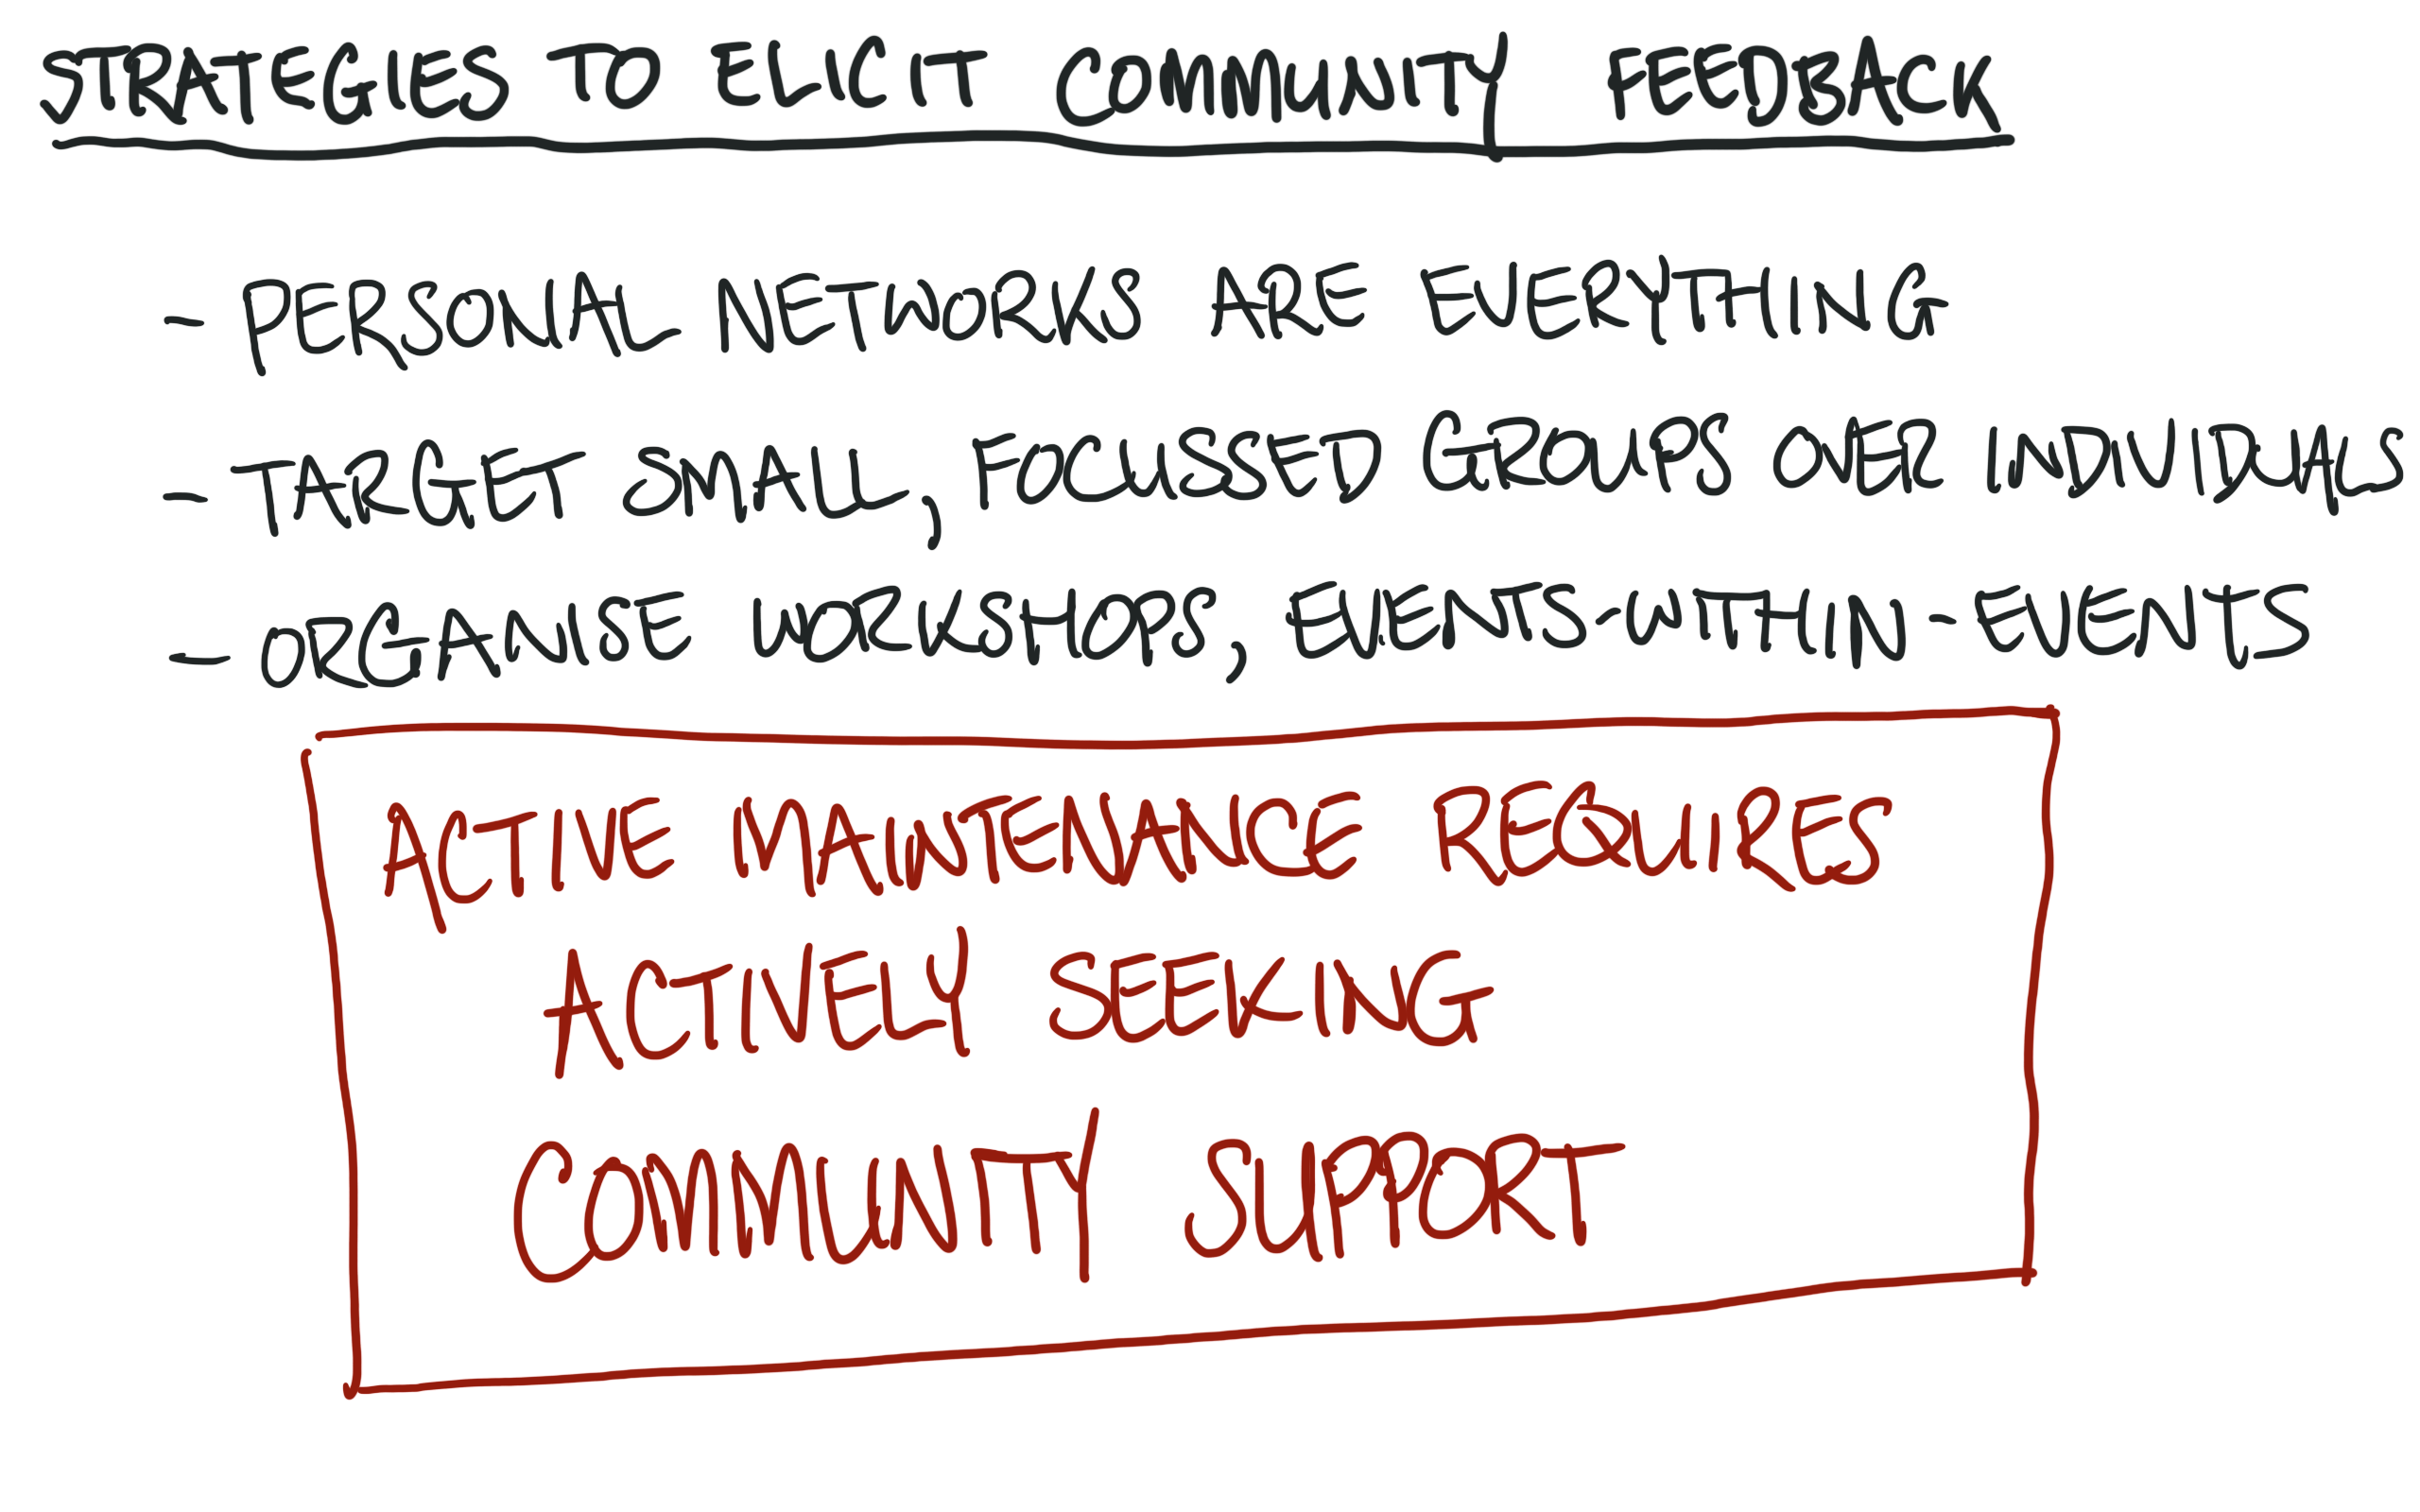 STRATEGIES TO ELICIT COMMUNITY FEEDBACK
- PERSONAL NETWORKS ARE EVERYTHING
- TARGET SMALL, FOCUSSED GROUPS OVER INDIVIDUALS
- ORGANISE WORKSHOPS, EVENTS-WITHIN-EVENTS
ACTIVE MAINTENANCE REQUIRES
ACTIVELY SEEKING
COMMUNITY SUPPORT